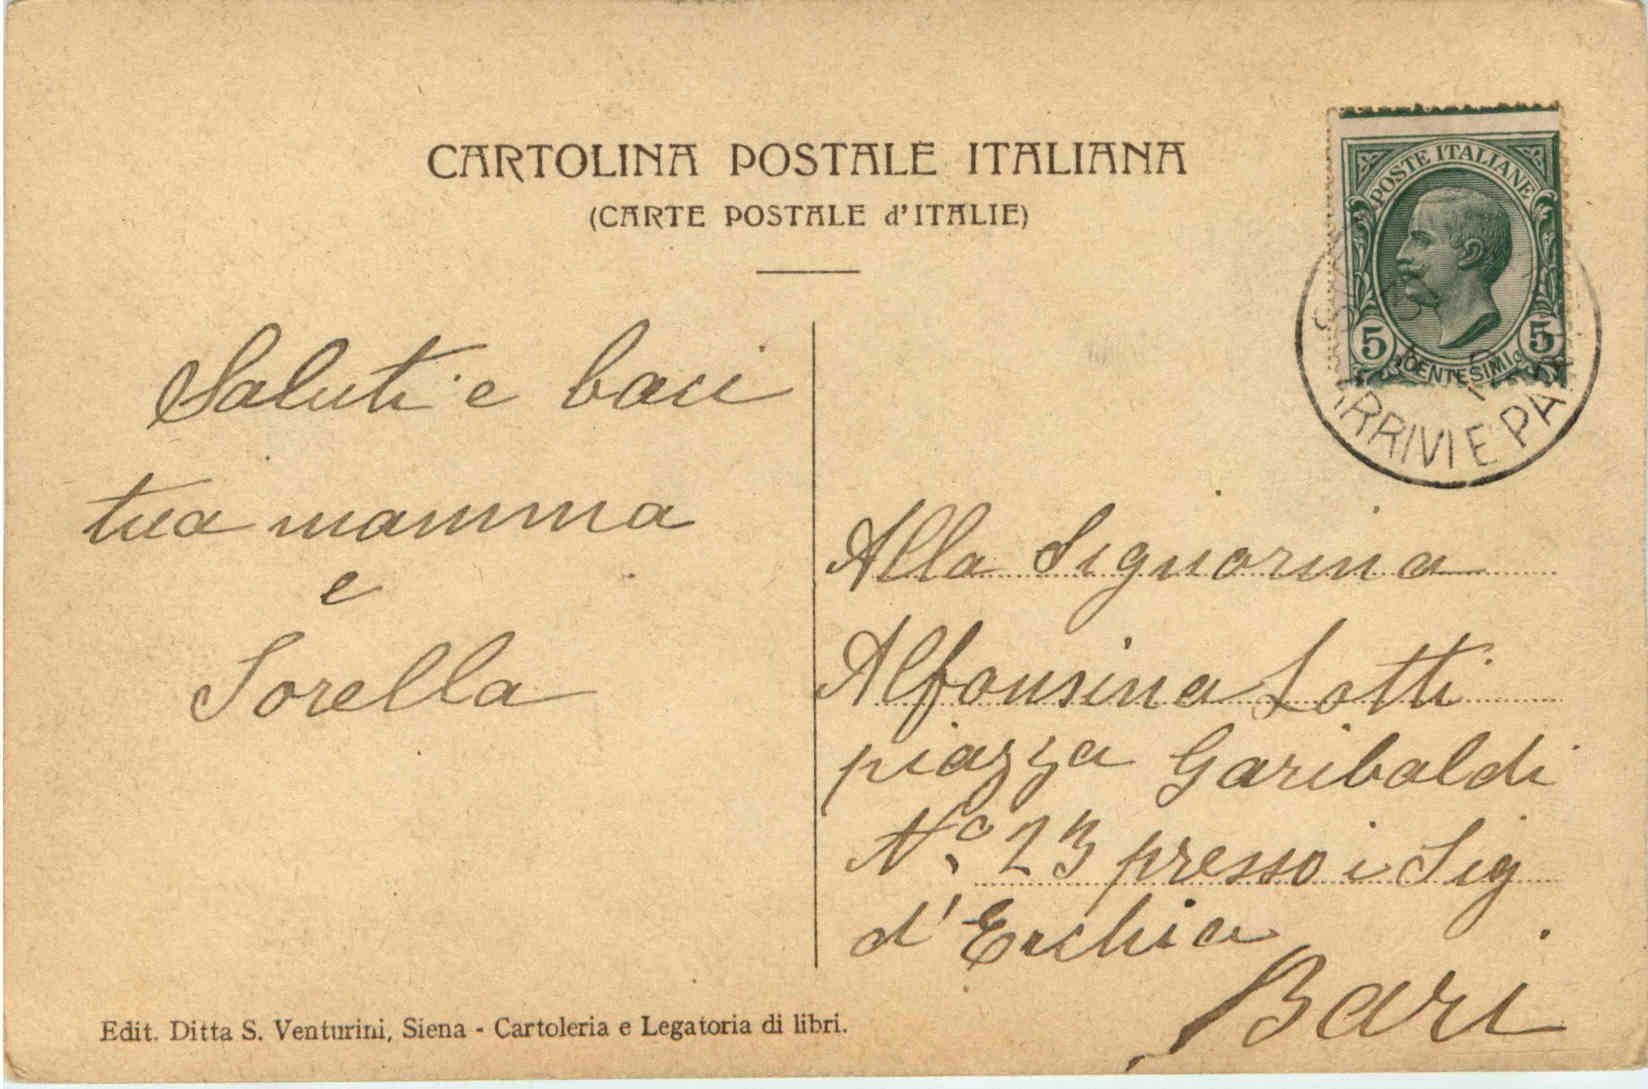 CARTOLINA POSTALE ITALIANA
(CARTE POSTALE d'ITALIE)
POSTE ITALIANE
5 CENTESIMI 5
ARRIVI E PAR
Saluti e baci
tua mamma
e
Sorella
Alla Signorina
Alfonsina Lotti
piazza Garibaldi
N.º 23 presso i Sig
d'Erchia
Bari
Edit. Ditta S. Venturini, Siena - Cartoleria e Legatoria di libri.